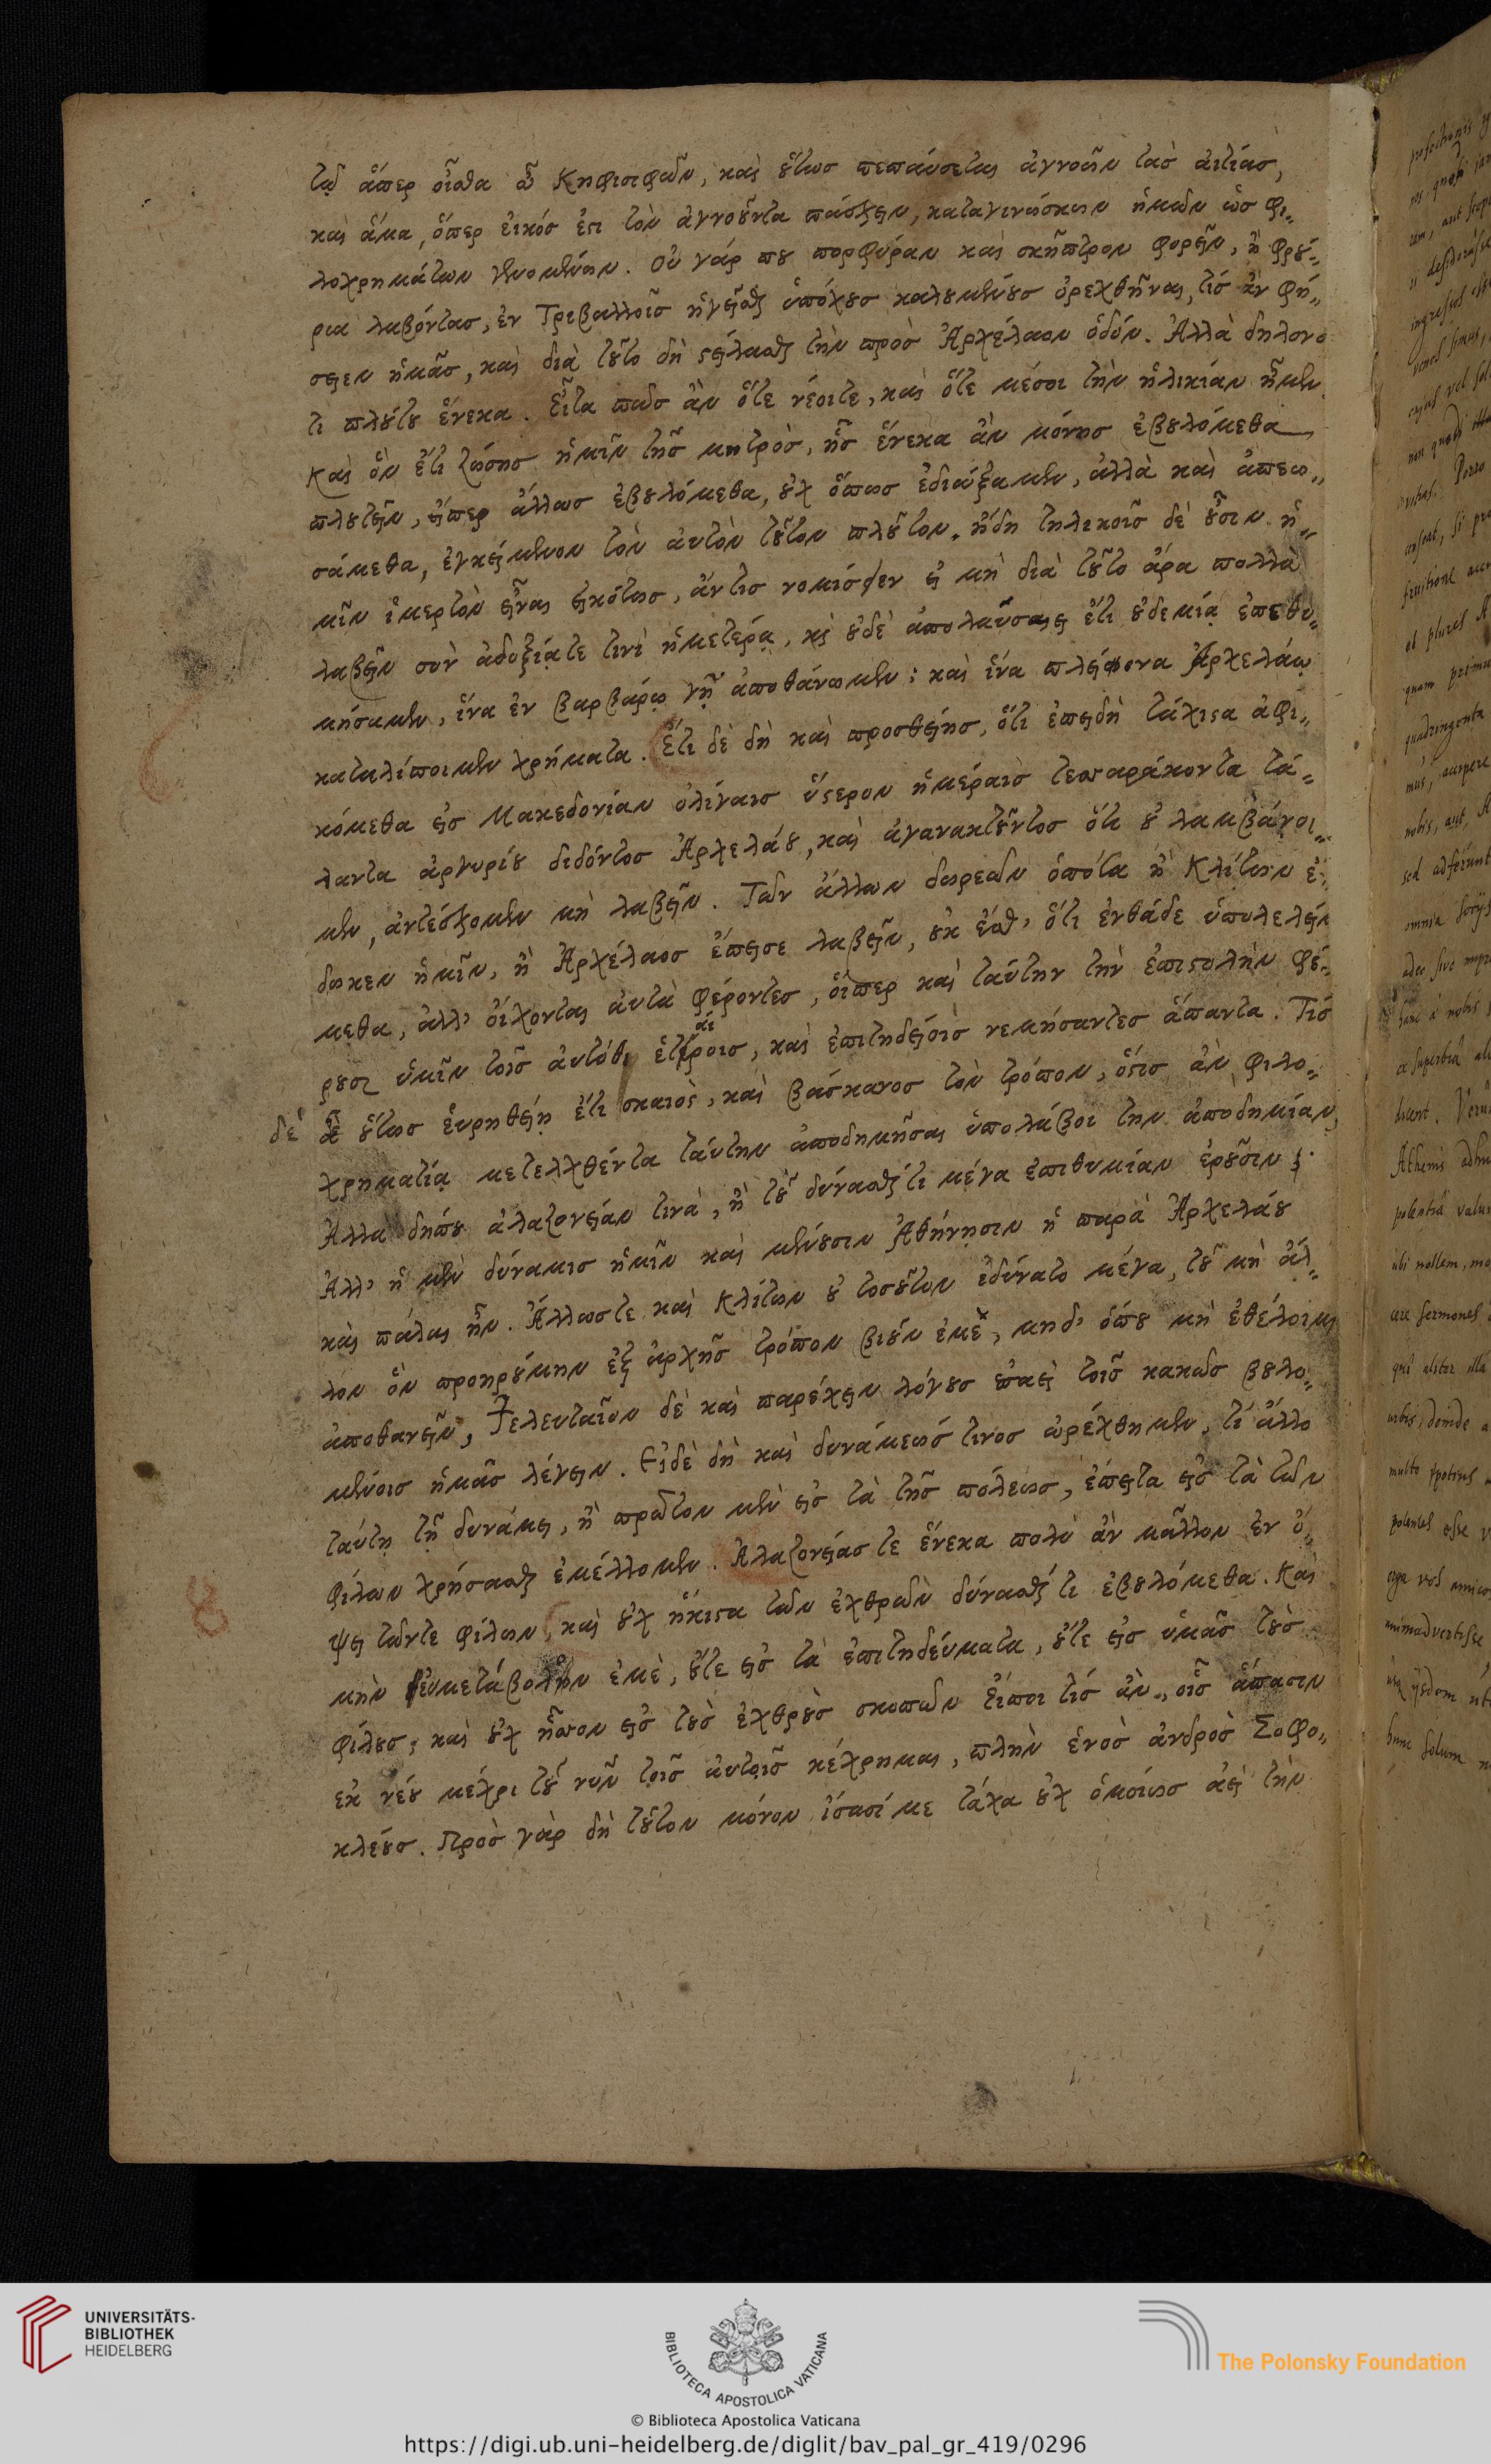 τῷ ἅπερ οἶσθα ὦ Κηφισιφῶν, καὶ οὕτως πεπαύσεται ἀγνοῶν τὰς ἀιτίας,
καὶ ἅμα, ὅπερ ἐικός ἐστι τὸν ἀγνοοῦντα πάσχειν, καταγινώσκων ἡμῶν ὡς φι„
λοχρημάτων γενομένων. οὐ γάρ που πορφύραν καὶ σκῆπτρον φορεῖν, ἢ φρού„
ρια λαβόντας, ἐν Τριβαλλοῖς ἡγεῖσθαι ὑπάρχους καλουμένους ὀρεχθῆναι, τίς ἂν φή„
σειεν ἡμᾶς, καὶ διὰ τοῦτο δὴ στείλασθαι τὴν πρὸς Ἀρχέλαον ὁδόν. Ἀλλὰ δηλονό
τι πλούτου ἕνεκα. Εἶτα πῶς ἂν ὅτε νέοιτε, καὶ ὅτε μέσοι τὴν ἡλικίαν ἦμεν.
Καὶ ὃν ἔτι ζώσης ἡμῖν τῆς μητρὸς, ἧς ἕνεκα ἂν μόνης ἐβουλόμεθα
πλουτεῖν, εἴπερ ἄλλως ἐβουλόμεθα, οὐχ ὅπως ἐδιώξαμεν, ἀλλὰ καὶ ἀπεω„
σάμεθα, ἐγκείμενον τὸν ἀυτὸν τοῦτον πλοῦτον. ἤδη τηλικοῖς δὲ οὖσιν ἡ„
μῖν ἱμερτὸν εἶναι εἰκότως, ἄν τις νομίσειεν εἰ μὴ διὰ τοῦτο ἄρα πολλὰ
λαβεῖν σὺν ἀδοξίᾳτε τινὶ ἡμετέρᾳ, καὶ οὐδὲ ἀπολαύσαει ἔτι οὐδεμίᾳ ἐπεθυ„
μήσαμεν, ἵνα ἐν βαρβάρῳ γῇ ἀποθάνωμεν: καὶ ἵνα πλείονα Ἀρχελάῳ
καταλίποιμεν χρήματα. Ἔτι δὲ δὴ καὶ προσθείης, ὅτι ἐπειδὴ τάχιστα ἀφι„
κόμεθα εἰς Μακεδονίαν ὀλίγαις ὕστερον ἡμέραις τεσσαράκοντα τά„
λαντα ἀργυρίου διδόντος Ἀρχελάου, καὶ ἀγανακτοῦντος ὅτι οὐ λαμβάνοι„
μεν, ἀντέσχομεν μὴ λαβεῖν. Τῶν ἄλλων δωρεῶν ὁπότα ἢ Κλίτων ἔ„
δωκεν ἡμῖν, ἢ Ἀρχέλαος ἔπεισε λαβεῖν, οὐκ ἔσθ' ὅτι ἐνθάδε ὑπολελείμ
μεθα, ἀλλ' οἴχονται ἀυτὰ φέροντες, οἵπερ καὶ ταύτην τὴν ἐπιστολὴν φέ„
ρουσι ὑμῖν τοῖς ἀυτόθι ἑταίροις, καὶ ἐπιτηδείοις νεμήσαντες ἅπαντα. Τίς
δὲ οὕτως ἑυρηθείη ἔτι σκαιὸς, καὶ βάσκανος τὸν τρόπον, ὅστις ἂν φιλο„
χρηματίᾳ μετελχθέντα ταύτην ἀποδημῆσαι ὑπολάβοι τὴν ἀποδημίαν,
Ἀλλα δήπου ἀλαζονείαν τινὰ, ἢ τοῦ δύνασθαί τι μέγα ἐπιθυμίαν ἐροῦσιν;
Ἀλλ' ἡ μὲν δύναμις ἡμῖν καὶ μένουσιν Ἀθήνησιν ἡ παρὰ Ἀρχελάου
καὶ πάλαι ἦν. Ἄλλωστε καὶ Κλίτων οὐ τοσοῦτον ἐδύνατο μέγα, τοῦ μὴ ἀλ„
λον ὃν προηρούμην ἐξ ἀρχῆς τρόπον βιοῦν ἐμέ, μηδ' ὅπου μὴ ἐθέλοιμι
ἀποθανεῖν, Τελευταῖον δὲ καὶ παρέχειν λόγους ἐπαεὶ τοῖς κακῶς βουλο„
μένοις ἡμᾶς λέγειν. Εἰδὲ δὴ καὶ δυνάμεώς τινος ὠρέχθημεν, τί ἄλλο
ταύτῃ τῇ δυνάμει, ἢ πρῶτον μὲν εἰς τὰ τῆς πόλεως, ἔπειτα εἰς τὰ τῶν
φίλων χρήσασθαι ἐμέλλομεν. Ἀλαζονείας τε ἕνεκα πολὺ ἂν μᾶλλον ἐν ὄ„
ψει τῶντε φίλων, καὶ οὐχ ἥκιστα τῶν ἐχθρῶν δύνασθαί τι ἐβουλόμεθα. Καὶ
μὴν ἐυμετάβολὴν ἐμὲ, οὔτε εἰς τὰ ἐπιτηδεύματα, οὔτε εἰς ὑμᾶς τοὺς
φίλους, καὶ οὐχ ἧσσον εἰς τοὺς ἐχθροὺς σκοπῶν ἔιποι τίς ἂν, οἷς ἅπασιν
εκ νέου μέχρι τοῦ νῦν τοῖς ἀυτοῖς κέχρημαι, πλὴν ἑνὸς ἀνδρὸς Σοφο„
κλέους. Πρὸς γὰρ δὴ τοῦτον μόνον ἰσασί με τάχα οὐχ ὁμοίως ἀεὶ τὴν
UNIVERSITÄTS-
BIBLIOTHEK
HEIDELBERG
BIBLIOTECA APOSTOLICA VATICANA
The Polonsky Foundation
© Biblioteca Apostolica Vaticana
https://digi.ub.uni-heidelberg.de/diglit/bav_pal_gr_419/0296